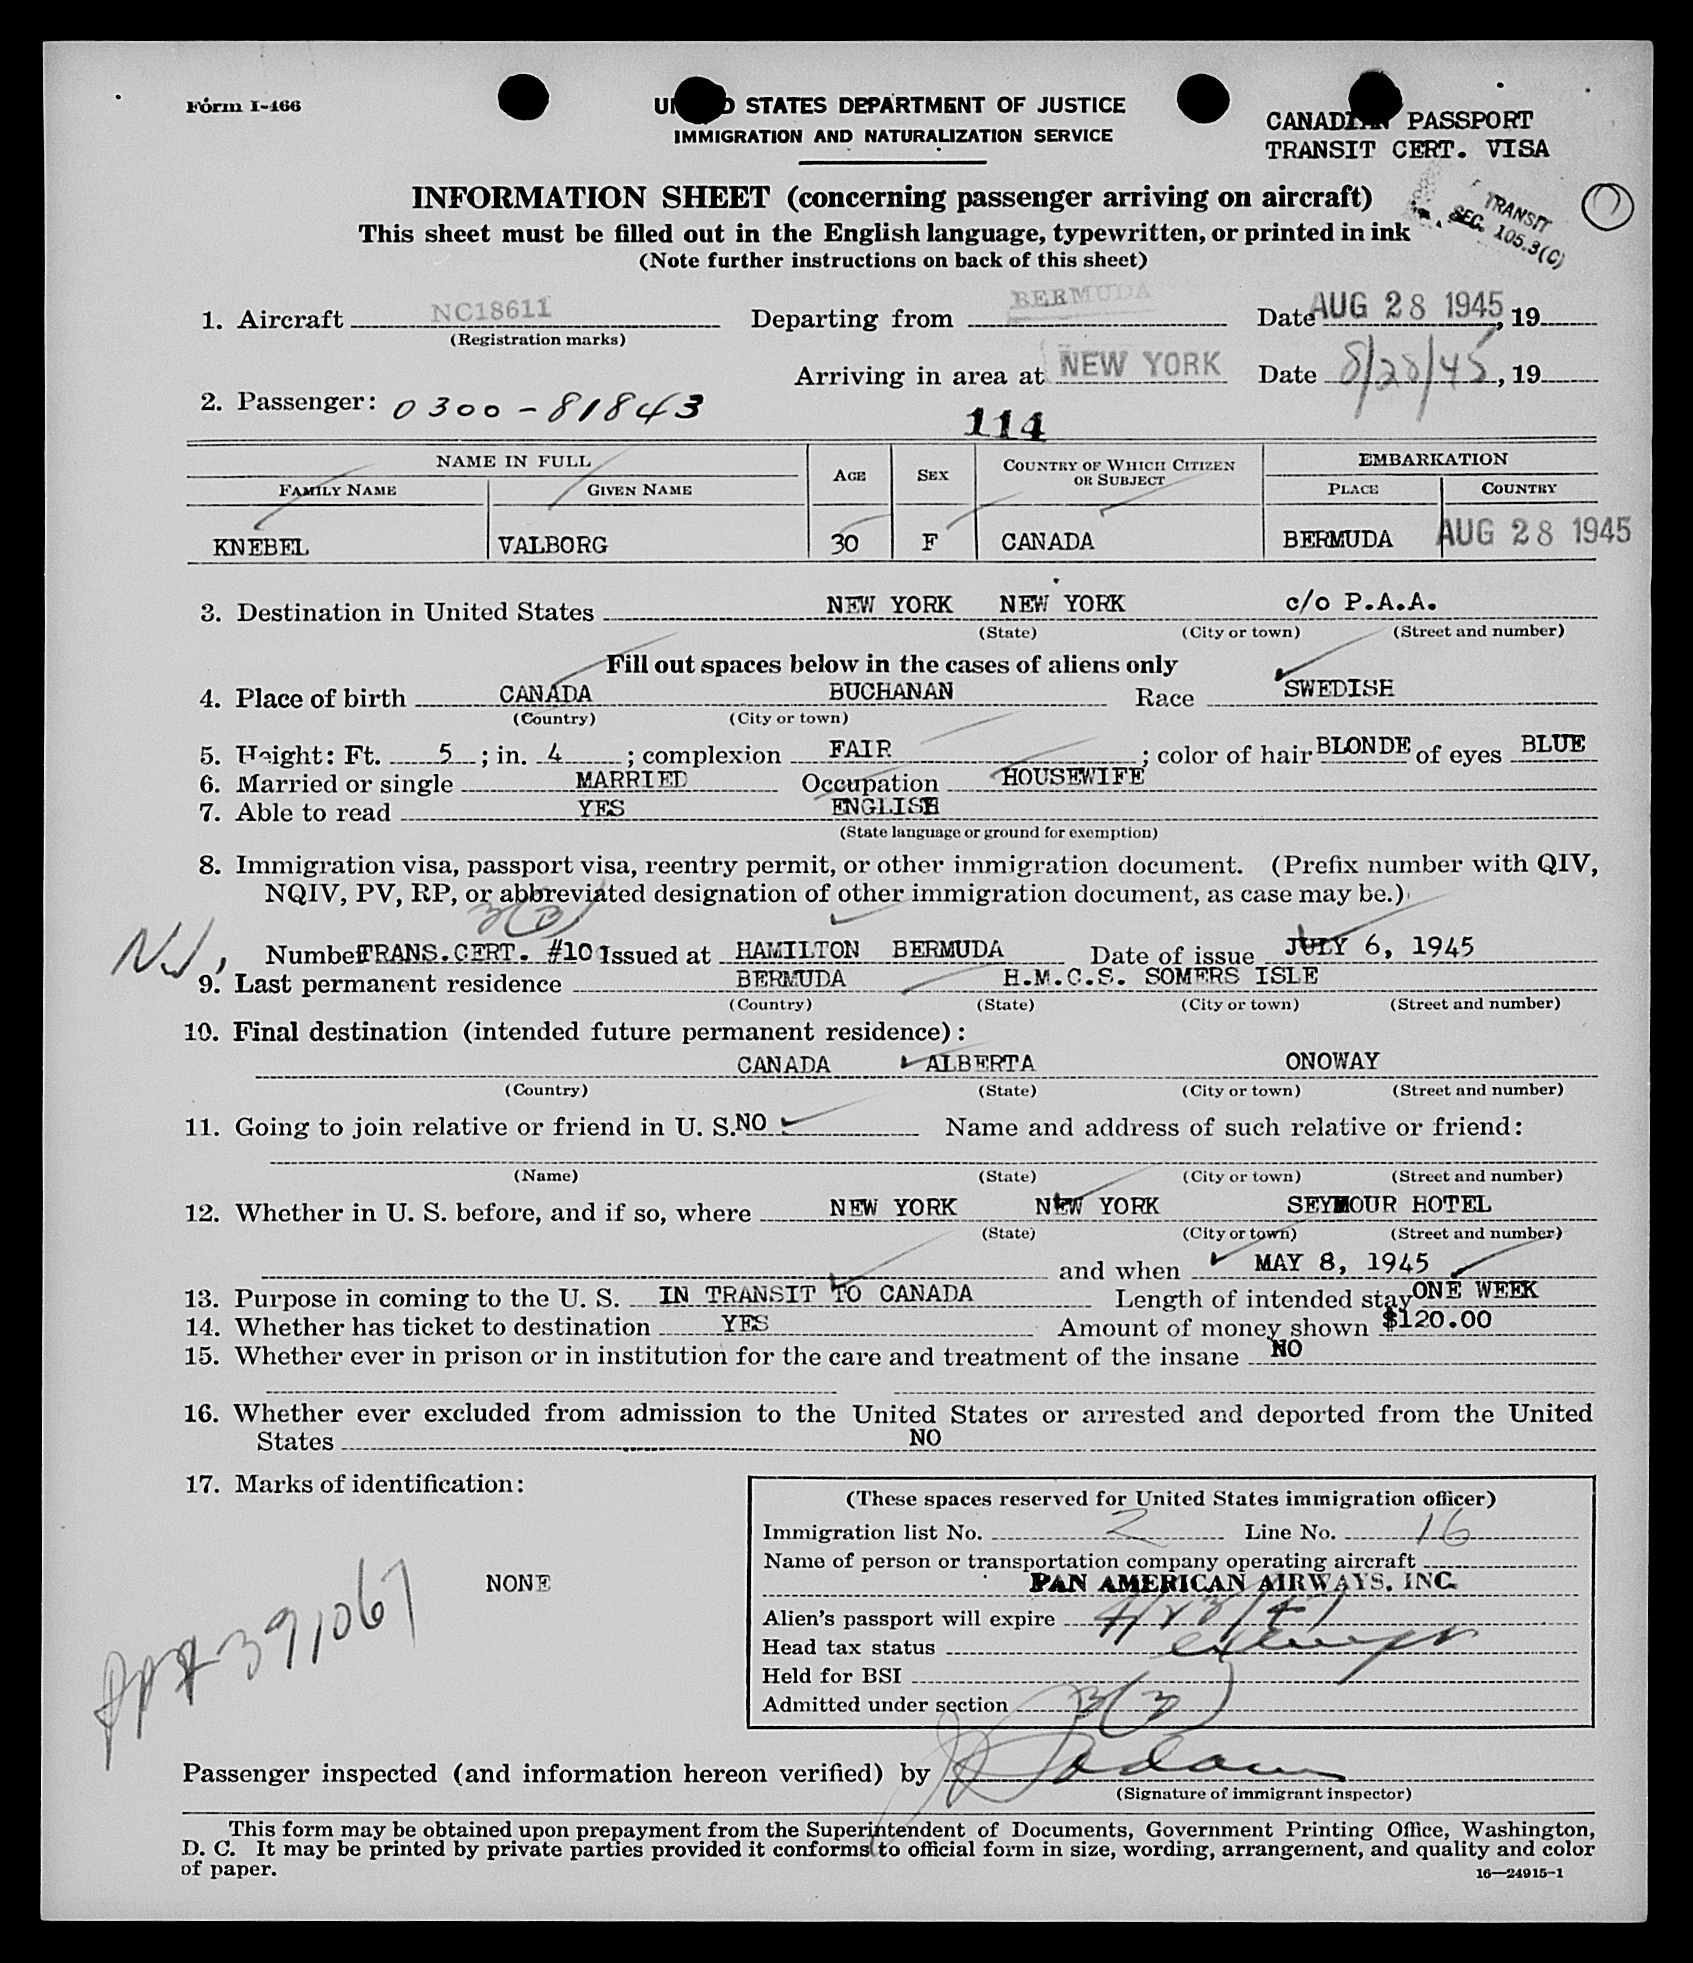 Form I-466
UNITED STATES DEPARTMENT OF JUSTICE
IMMIGRATION AND NATURALIZATION SERVICE
CANADIAN PASSPORT
TRANSIT CERT. VISA
TRANSIT
SEC. 105.3(C)
INFORMATION SHEET (concerning passenger arriving on aircraft)
This sheet must be filled out in the English language, typewritten, or printed in ink
(Note further instructions on back of this sheet)
1. Aircraft NC18611 Departing from BERMUDA Date AUG 28 1945, 19
(Registration marks)
Arriving in area at NEW YORK Date 8/28/45, 19
2. Passenger: 0300-81843
114
NAME IN FULL AGE SEX COUNTRY OF WHICH CITIZEN OR SUBJECT EMBARKATION
FAMILY NAME GIVEN NAME PLACE COUNTRY
KNEBEL VALBORG 30 F CANADA BERMUDA AUG 28 1945
3. Destination in United States NEW YORK NEW YORK c/o P.A.A.
(State) (City or town) (Street and number)
Fill out spaces below in the cases of aliens only
4. Place of birth CANADA BUCHANAN Race SWEDISH
(Country) (City or town)
5. Height: Ft. 5; in. 4; complexion FAIR; color of hair BLONDE of eyes BLUE
6. Married or single MARRIED Occupation HOUSEWIFE
7. Able to read YES ENGLISH
(State language or ground for exemption)
8. Immigration visa, passport visa, reentry permit, or other immigration document. (Prefix number with QIV,
NQIV, PV, RP, or abbreviated designation of other immigration document, as case may be.)
3(3)
Number TRANS.CERT. #10 Issued at HAMILTON BERMUDA Date of issue JULY 6, 1945
9. Last permanent residence BERMUDA H.M.C.S. SOMERS ISLE
(Country) (State) (City or town) (Street and number)
10. Final destination (intended future permanent residence):
CANADA ALBERTA ONOWAY
(Country) (State) (City or town) (Street and number)
11. Going to join relative or friend in U. S. NO Name and address of such relative or friend:
(Name) (State) (City or town) (Street and number)
12. Whether in U. S. before, and if so, where NEW YORK NEW YORK SEYMOUR HOTEL
(State) (City or town) (Street and number)
and when MAY 8, 1945
13. Purpose in coming to the U. S. IN TRANSIT TO CANADA Length of intended stay ONE WEEK
14. Whether has ticket to destination YES Amount of money shown $120.00
15. Whether ever in prison or in institution for the care and treatment of the insane NO
16. Whether ever excluded from admission to the United States or arrested and deported from the United
States NO
17. Marks of identification:
NONE
PPT 391067
(These spaces reserved for United States immigration officer)
Immigration list No. 2 Line No. 16
Name of person or transportation company operating aircraft
PAN AMERICAN AIRWAYS, INC.
Alien's passport will expire
Head tax status exempt
Held for BSI
Admitted under section 3(3)
Passenger inspected (and information hereon verified) by
(Signature of immigrant inspector)
This form may be obtained upon prepayment from the Superintendent of Documents, Government Printing Office, Washington,
D. C. It may be printed by private parties provided it conforms to official form in size, wording, arrangement, and quality and color
of paper.
16—24915-1